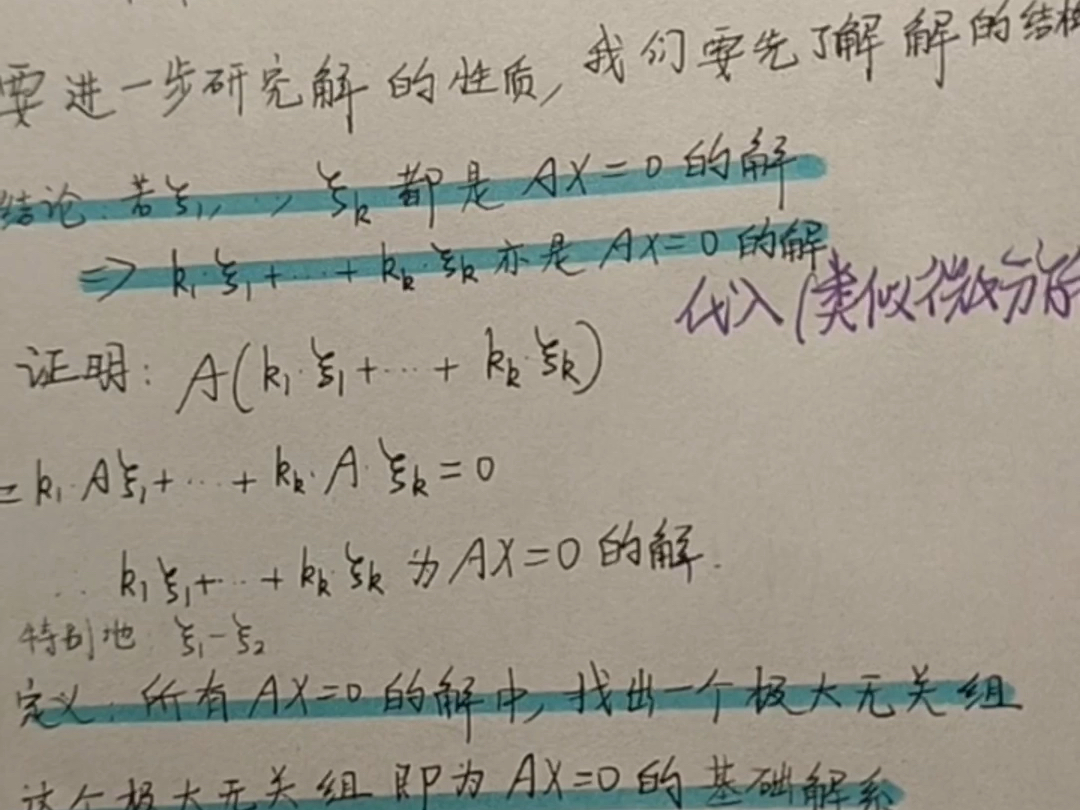 要进一步研究解的性质,我们要先了解解的结构
结论:若ξ₁,…,ξₖ都是AX=0的解
⇒k₁·ξ₁+…+kₖ·ξₖ亦是AX=0的解
代入(类似微分
证明:A(k₁·ξ₁+…+kₖ·ξₖ)
=k₁·Aξ₁+…+kₖ·A·ξₖ=0
∴k₁ξ₁+…+kₖ·ξₖ为AX=0的解.
特别地:ξ₁-ξ₂
定义:所有AX=0的解中,找出一个极大无关组
这个极大无关组即为AX=0的基础解系